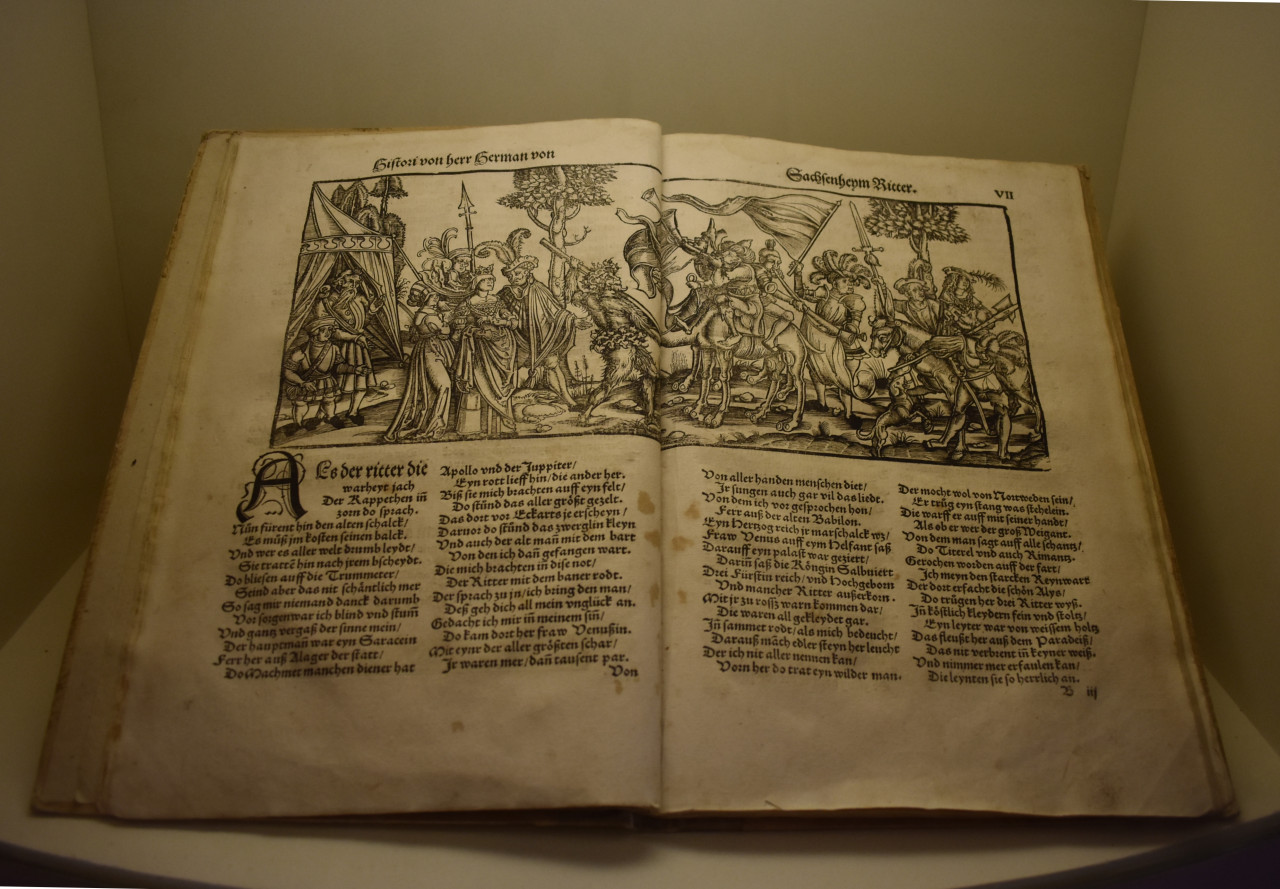 Histori von herr Herman von
Sachsenheym Ritter.
VII
AEs der ritter die
warheyt jach
Der Rappethen iñ
zorn do sprach.
Nůn fůrent hin den alten schalck/
Es můß jm kosten seinen balck.
Vnd wer es aller welt drumb leydt/
Sie trattẽ hin nach jrem bscheydt.
Do bliesen auff die Trummeter/
Seind aber das nit schäntlich mer
So sag mir niemand danck darumb
Vor sorgen war ich blind vnd stum̃
Vnd gantz vergaß der sinne mein/
Der hauptman war eyn Saracein
Ferr her auß Alager der statt/
Do Machmet manchen diener hat
Apollo vnd der Juppiter/
Eyn rott lieff hin/die ander her.
Biß sie mich brachten auff eyn felt/
Do stůnd das aller größt gezelt.
Das dort vor Eckarts je erscheyn/
Darnor do stůnd das zwerglin kleyn
Vnd auch der alt man mit dem bart
Von den ich dañ gefangen wart.
Die mich brachten in dise not/
Der Ritter mit dem baner rodt.
Der sprach zu jn/ich bring den man/
Deß geh dich all mein vnglück an.
Gedacht ich mir iñ meinem siñ/
Do kam dort her fraw Venußin.
Mit eynr der aller größten schar/
Jr waren mer/dañ tausent par.
Von
Von aller handen menschen diet/
Jr sungen auch gar vil das liedt.
Von dem ich vor gesprochen hon/
Ferr auß der alten Babilon.
Eyn Hertzog reich jr marschalck wz/
Fraw Venus auff eym Helfant saß
Darauff eyn palast war geziert/
Dariñ saß die Röngin Salbuiert
Drei Fürstin reich/vnd Hochgeborn
Vnd mancher Ritter außerkorn.
Mit jr zu rossz warn kommen dar/
Die waren all gekleydet gar.
Jñ sammet rodt/als mich bedeucht/
Darauß mãch edler steyn her leucht
Der ich nit aller nennen kan/
Vorn her do trat eyn wilder man.
Der mocht wol von Nortweden sein/
Er trůg eyn stang was stehelein.
Die warff er auff mit seiner handt/
Als ob er wer der groß Weigant.
Von dem man sagt auff alle schantz/
Do Titrel vnd auch Rimantz.
Gerochen worden auff der fart/
Ich meyn den starcken Reynwart
Der dort erfacht die schön Alys/
Do trůgen her drei Ritter wyß.
Jñ köstlich kleydern fein vnd stoltz/
Eyn leyter war von weissem holtz
Das fleußt her auß dem Paradeiß/
Das nit verbrent iñ keyner weiß.
Vnd nimmer mer erfaulen kan/
Die leynten sie so herrlich an.
B iij